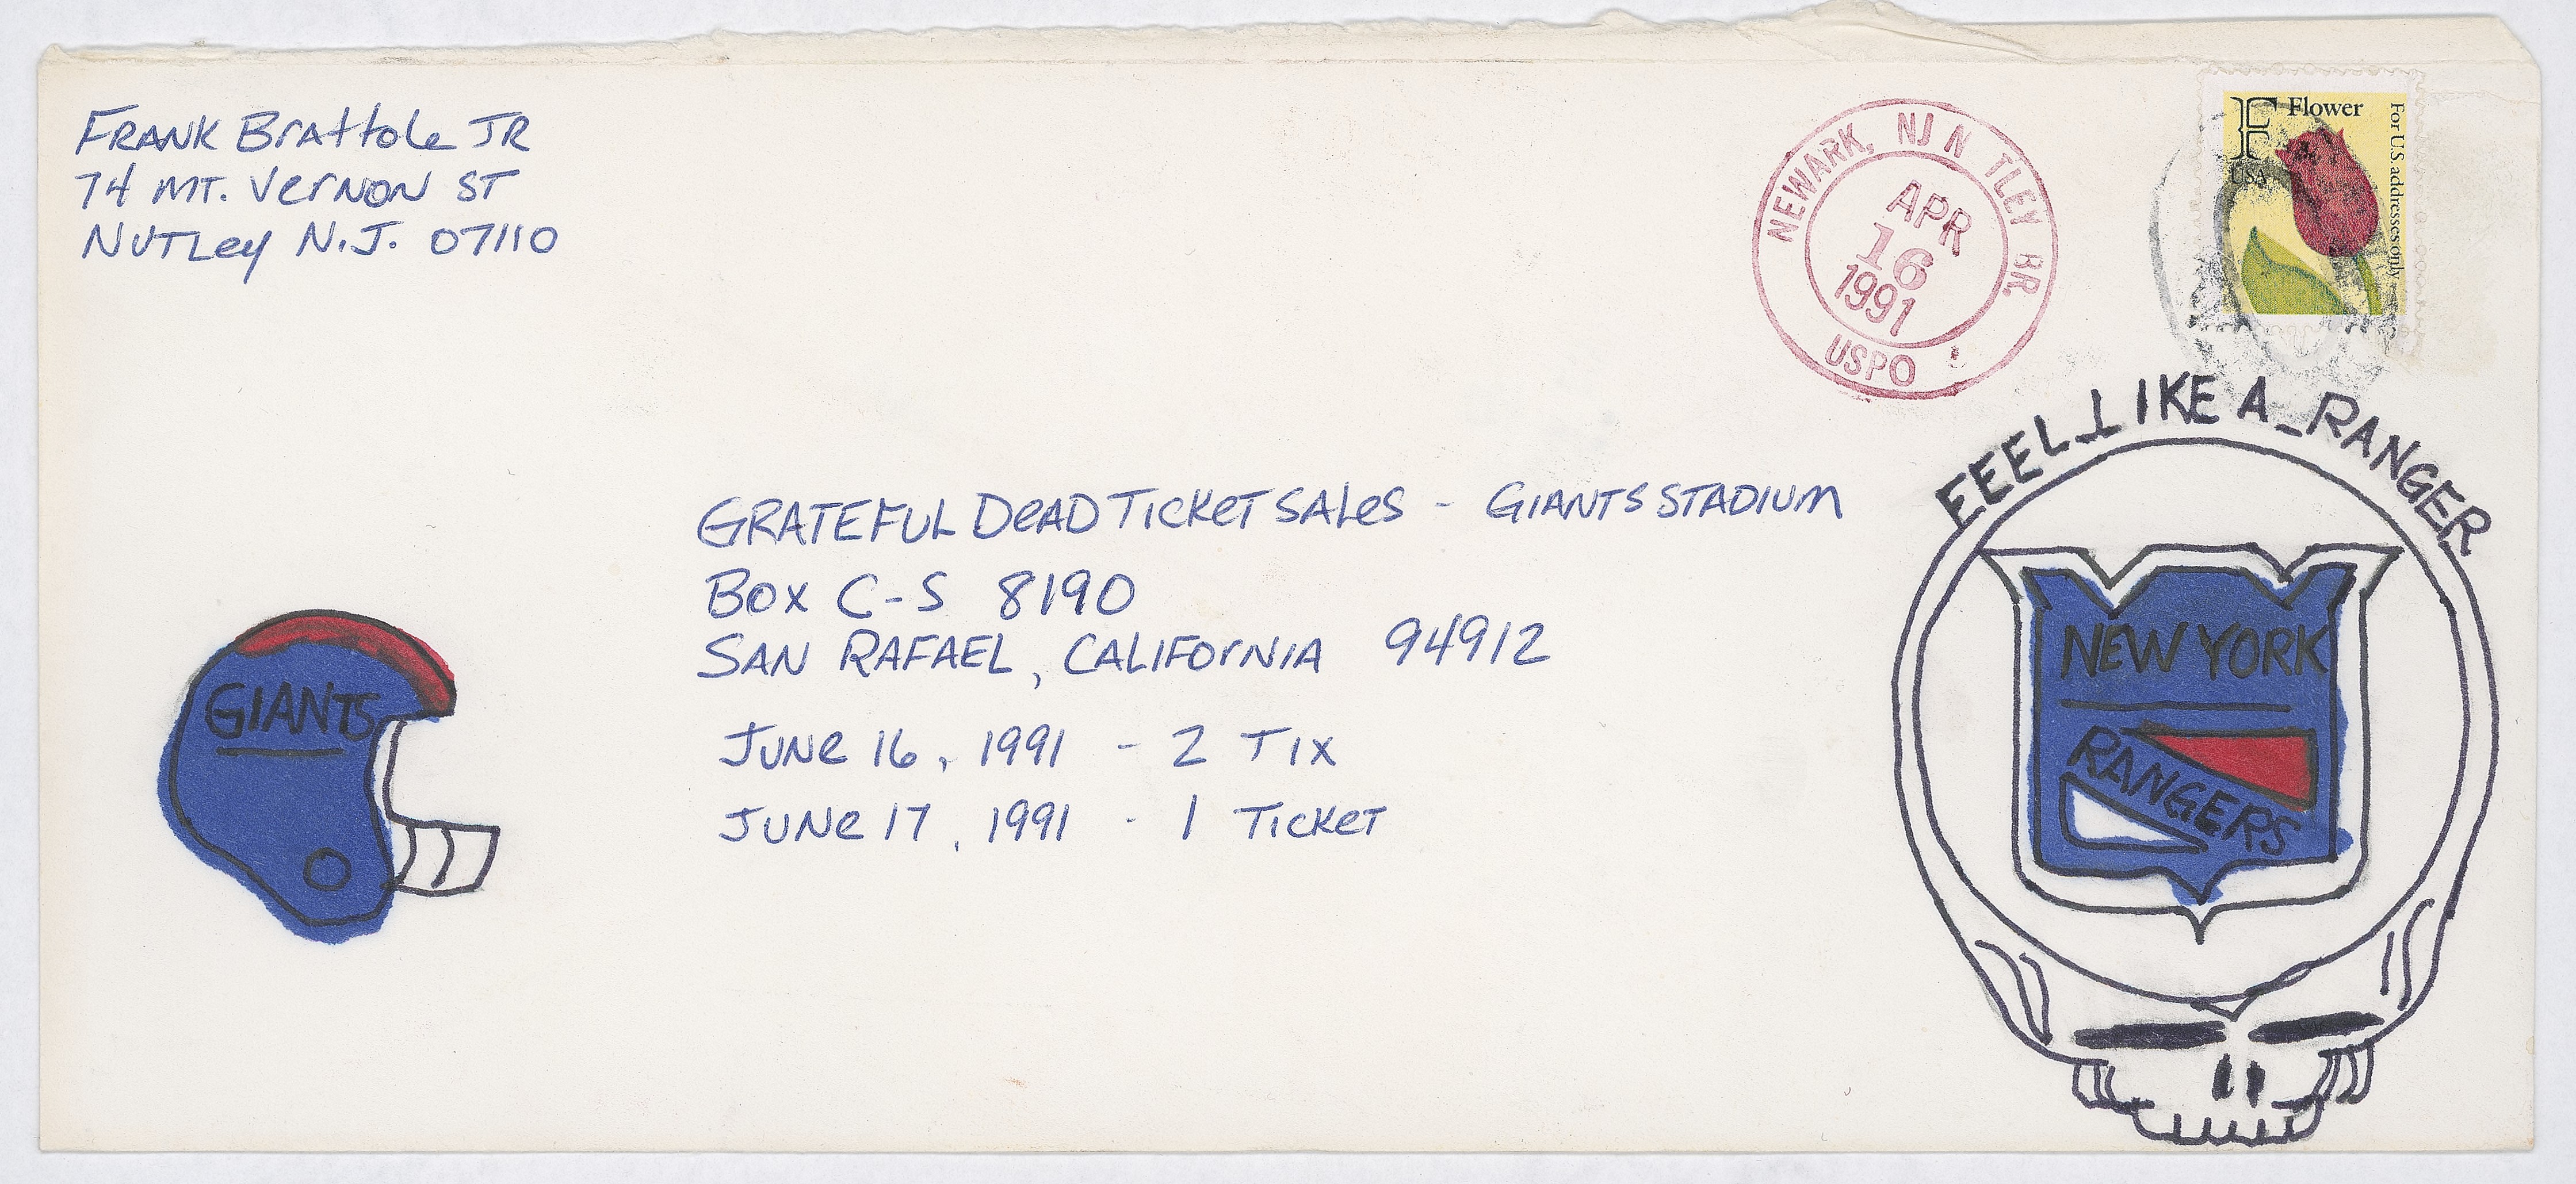 FRANK Brattole JR
74 MT. Vernon ST
Nutley N.J. 07110
NEWARK, NJ N TLEY BR.
APR
16
1991
USPO
F Flower
USA
For U.S. addresses only
GRATEFUL DEAD TICKET SALES - GIANTS STADIUM
Box C-S 8190
SAN RAFAEL, CALIFORNIA 94912
June 16, 1991 - 2 TIX
June 17, 1991 - 1 TICKET
GIANTS
FEEL LIKE A RANGER
NEW YORK
RANGERS